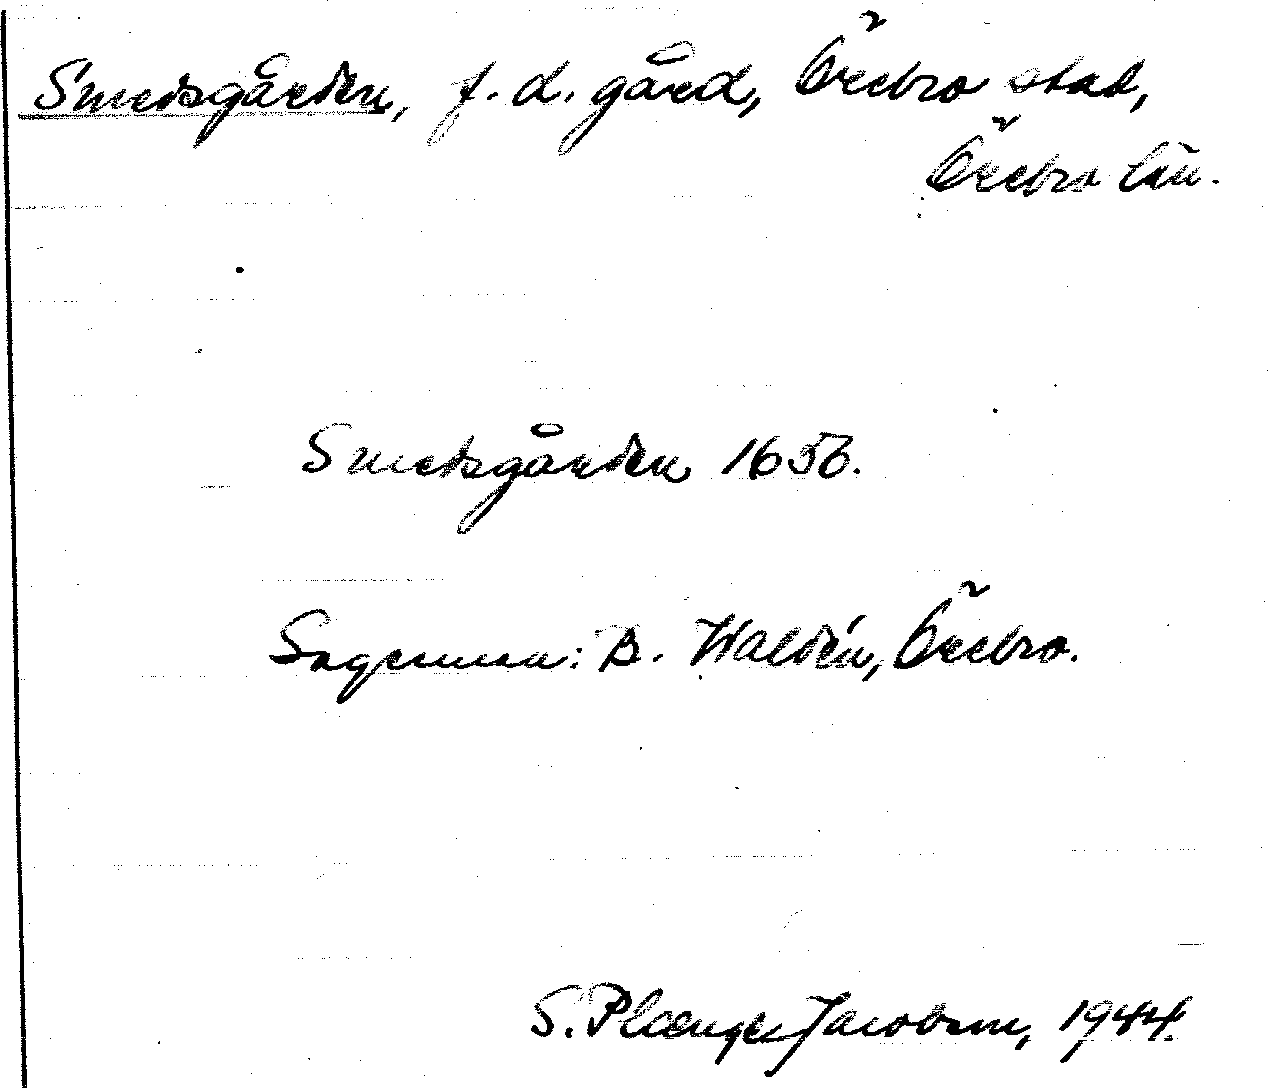 Smedsgården, f.d. gård, Örebro stad,
Örebro län.
Smedsgården 1656.
Sagesman: B. Waldén, Örebro.
S. Plænge Jacobson, 1944.